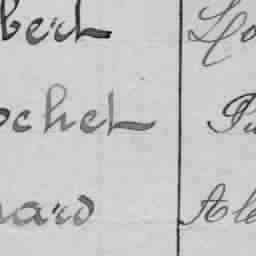 bert Lo
ochet Pu
nard Ale